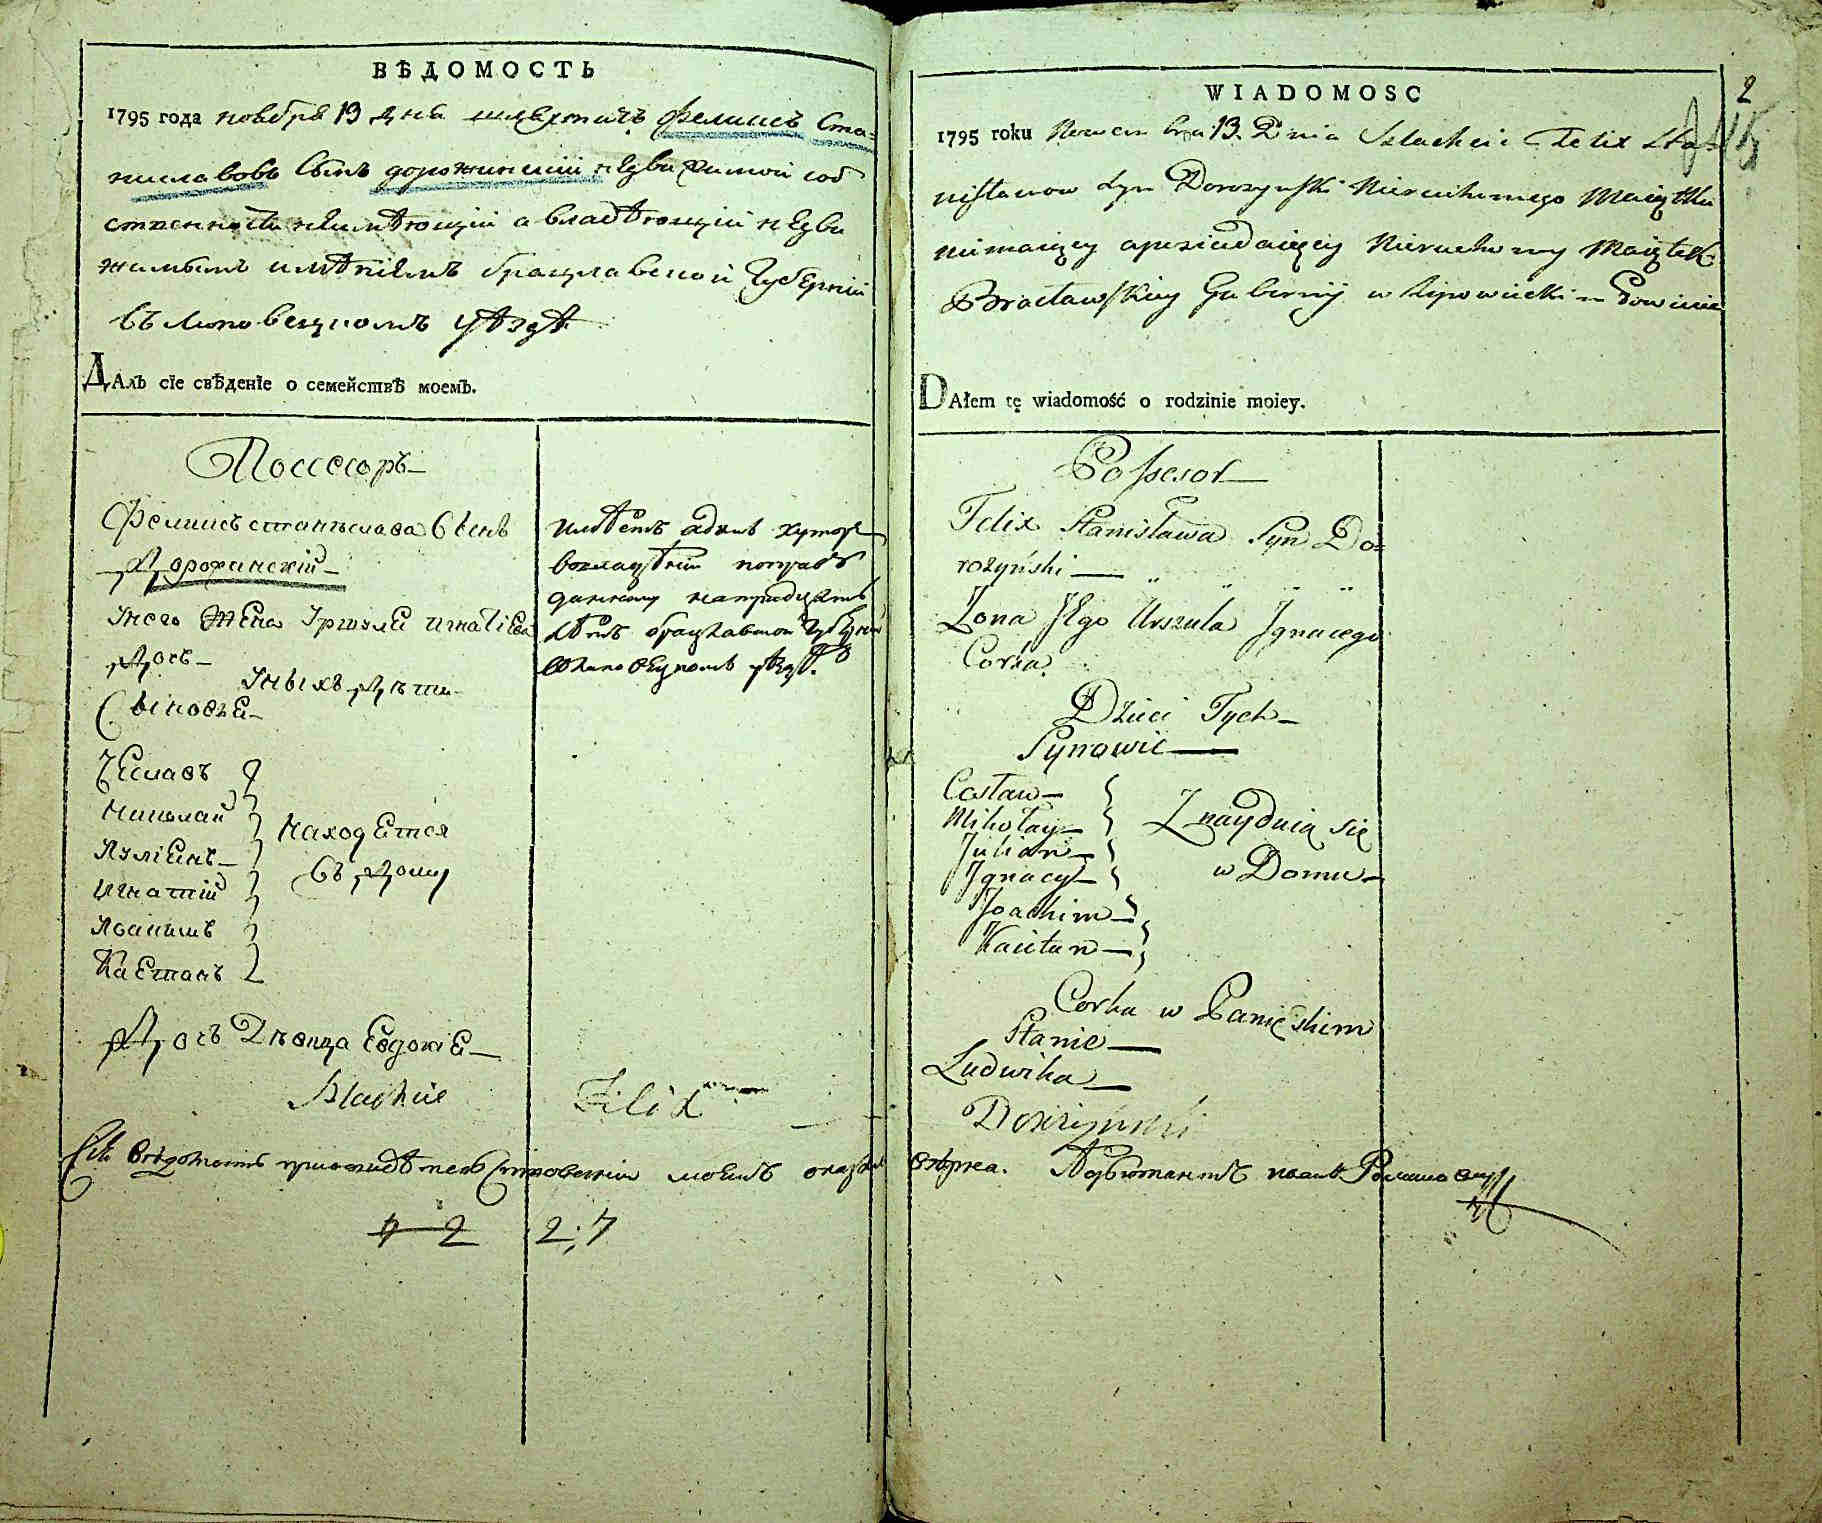 ВѢДОМОСТЬ
1795 года ноября 13 дня шляхтичъ Феликсъ Ста=
ниславовъ сынъ дорожинский недвижимой соб
ственности неимѣющий а владѣющий недви
жимымъ имѣниемъ брацлавской губернии
въ липовецкомъ уѣздѣ
ДАлъ сїе свѣденїе о семействѣ моемъ.
Поссесоръ
Феликсъ станислава сынъ
Дорожинский
Унего жена Уршуле игнатиева
Дочь
Уныхъ дѣти
Сыновье
Чеславъ
Николай
Юлиенъ
Игнатий
Яоакимъ
Каетанъ
Находется
въ дому
Дочь Дѣвица Евдокие
имѣетъ адинъ хуторъ
вовладѣнии
данному натридцять
лѣтъ брацлавской губернии
влиповецкомъ уѣздѣ.
Slachcic Felix
Сию вѣдомость
7 2 2:7
2
WIADOMOSC
1795 roku Nowembra 13. Dnia Szlachcic Felix Sta=
nisławow syn Dorozynski Nieruchomego Maiątku
niemaiący aposiadaiący Nieruchomy Maiątek
Bracławskiey Gubernij w Lipowieckim Powiecie
DAłem tę wiadomość o rodzinie moiey.
Possesor
Felix Stanisława Syn Do=
rożyński
Zona Jego Urszula Jgnacego
Corka.
Dzieci Tych
Synowie
Cesław
Mikołay
Julian
Jgnacy
Joachim
Kaietan
Znayduią się
w Domu
Corka w Panięskim
Stanie
Ludwika
Dorożynski